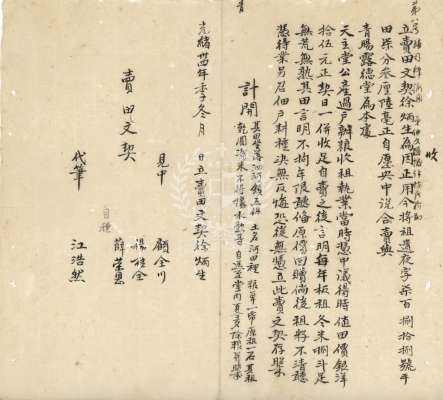 收
立賣田文契徐炳生為因正用今將祖遺夜字柒百捌拾捌號平
田柒分叁厘陸毫正自願央中說合賣與
青暘露德堂為本處
天主堂公產過戶辦粮收租執業當時憑中議得時值田價銀洋
拾伍元正契日一併收足自賣之後言明每年板租冬米捌斗足
無荒無熟其田言明不拘年限聽備原價回贖倘後租籽不清聽
憑待業另召佃戶耕種決無反悔恐後無憑立此賣文契存照
計開
其田坐落
土名河田里
乾圓潔米不得攙水
光緒卅四年季冬月 日立賣田文契徐炳生
見中 顧全川
楊雄全
薛榮恩
自種
賣田文契
代筆 江浩然